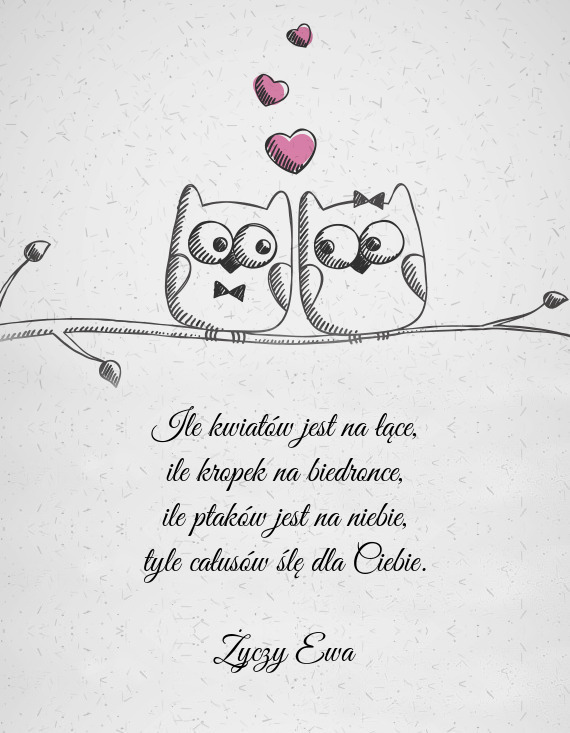 Ile kwiatów jest na łące,
ile kropek na biedronce,
ile ptaków jest na niebie,
tyle całusów ślę dla Ciebie.
Życzy Ewa